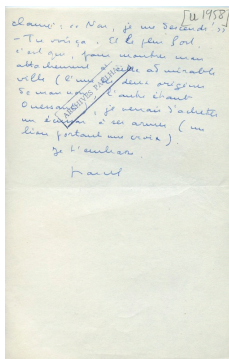 [u 1958]
clamé : "Non, je me descends"
- Tu vois ça. Et le plus fort
c'est que, pour montrer mon
attachement à cette admirable
ville (l'une des deux origines
de mon nom, l'autre étant
Ouessant), je venais d'acheter
un écusson à ses armes (un
lion portant une croix).
Je t'embrasse
Marcel
ARCHIVES PAUL